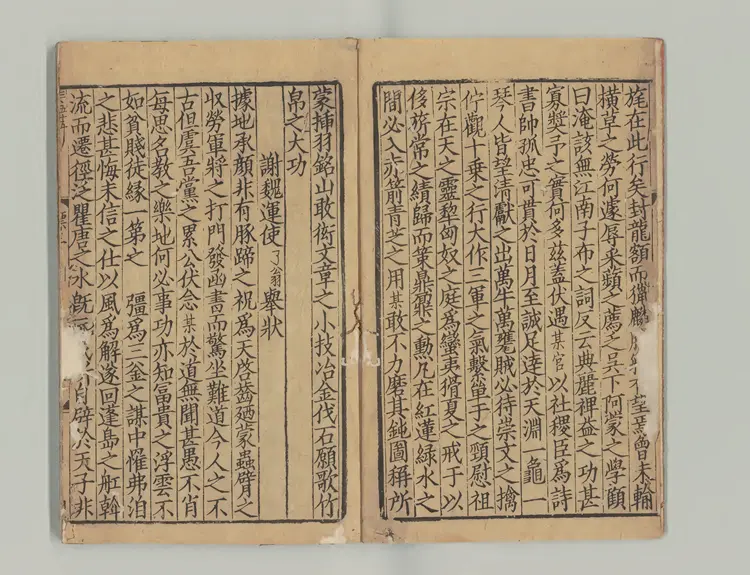 旄在此行矣封龍額而獵麟望焉曾未輪
橫草之勞何遽辱采蘋之薦之吳下阿蒙之學顧
曰淹該無江南子布之詞反云典麗裨益之功甚
寡奬予之實何多茲蓋伏遇某官以社稷臣爲詩
書帥孤忠可貫於日月至誠足達於天淵一龜一
琴人皆望清獻之出萬牛萬甕賊必待崇文之擒
佇觀十乗之行大作三軍之氣繫單于之頸慰祖
宗在天之靈犂匈奴之庭爲蠻夷猾夏之戒于以
侈旂常之績歸而䇿鼎鼐之勲乃在紅蓮緑水之
間必入赤箭青芝之用某敢不力磨其鈍圖稱所
蒙揷羽銘山敢衒文章之小技冶金伐石願歌竹
帛之大功
謝魏運使了翁舉狀
據地承顔非有豚蹄之祝爲天啓齒廼蒙蟲臂之
収勞軍將之打門發函書而驚坐難道今人之不
古但虞吾黨之累公伏念某於道無聞甚愚不肖
每思名教之樂地何必事功亦知富貴之浮雲不
如貧賤徒縁一第之彊爲三釡之謀中罹弗洎
之悲甚悔未信之仕以風爲解遂回蓬島之舡斡
流而遷徑泛瞿唐之水旣辟於天子非